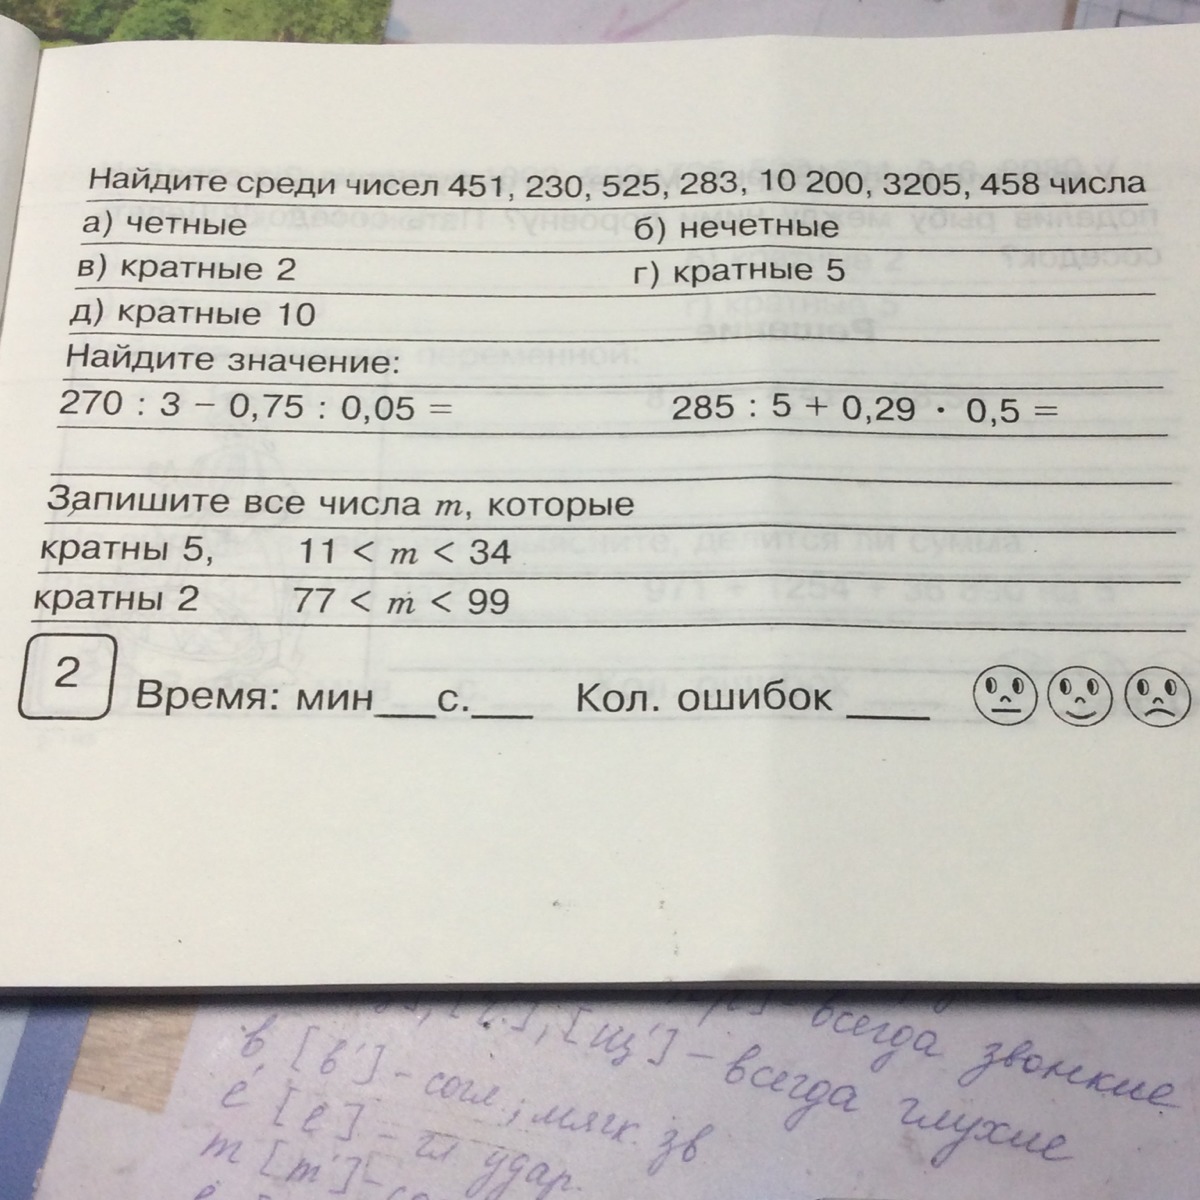 Найдите среди чисел 451, 230, 525, 283, 10 200, 3205, 458 числа
а) четные б) нечетные
в) кратные 2 г) кратные 5
д) кратные 10
Найдите значение:
270 : 3 – 0,75 : 0,05 = 285 : 5 + 0,29 · 0,5 =
Запишите все числа m, которые
кратны 5, 11 < m < 34
кратны 2 77 < m < 99
2 Время: мин___с.___ Кол. ошибок ____
всегда звонкие
[щ'] – всегда глухие
в [в'] – согл, мягк. зв
ё [ё] – гл удар.
т [т'] –